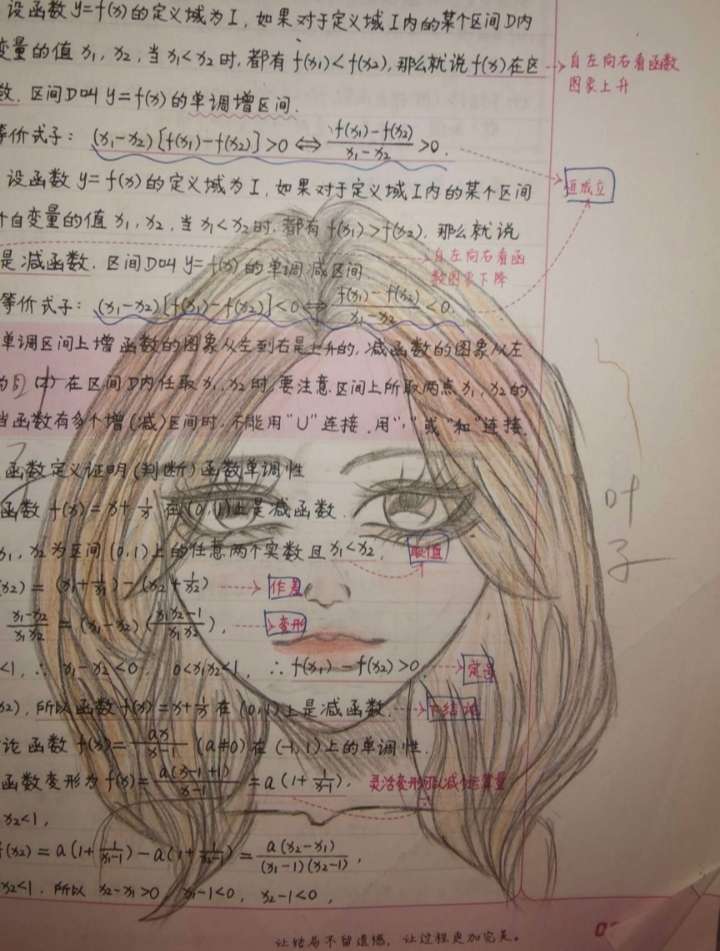 设函数 y=f(x)的定义域为 I, 如果对于定义域 I 内的某个区间 D 内
变量的值 x₁, x₂, 当 x₁<x₂ 时, 都有 f(x₁)<f(x₂), 那么就说 f(x) 在区
自左向右看函数
图象上升
数. 区间D叫 y=f(x)的单调增区间.
等价式子: (x₁-x₂)[f(x₁)-f(x₂)]>0 ⇔ f(x₁)-f(x₂)/x₁-x₂ >0.
恒成立
设函数 y=f(x)的定义域为 I, 如果对于定义域 I 内的某个区间
个自变量的值 x₁, x₂, 当 x₁<x₂ 时, 都有 f(x₁)>f(x₂), 那么就说
是减函数. 区间D叫 y=f(x)的单调减区间.
自左向右看函
数图象下降
等价式子: (x₁-x₂)[f(x₁)-f(x₂)]<0 ⇔ f(x₁)-f(x₂)/x₁-x₂ <0.
单调区间上增函数的图象从左到右是上升的, 减函数的图象从左
在区间D内任取 x₁, x₂ 时, 要注意区间上所取两点 x₁, x₂ 的
当函数有多个增(减)区间时, 不能用“U”连接, 用“,”或“和”连接.
函数定义证明(判断)函数单调性
函数 f(x)=x+1/x 在(0,1)上是减函数.
叶
子
x₁, x₂ 为区间(0,1)上的任意两个实数且 x₁<x₂, 取值
x₂) = (x₁+1/x₁)-(x₂+1/x₂) 作差
x₁-x₂/x₁x₂ = (x₁-x₂)(x₁x₂-1/x₁x₂), 变形
<1, ∴ x₁-x₂<0, 0<x₁x₂<1, ∴ f(x₁)-f(x₂)>0. 定号
x₂), 所以函数 f(x)=x+1/x 在(0,1)上是减函数. 下结论
论函数 f(x)=ax/x-1 (a≠0)在(-1,1)上的单调性.
函数变形为 f(x)=a(x-1+1)/x-1 = a(1+1/x-1), 灵活变形可以减小运算量
x₂<1,
f(x₂) = a(1+1/x₁-1)-a(1+1/x₂-1) = a(x₂-x₁)/(x₁-1)(x₂-1),
x₂<1, 所以 x₂-x₁>0, x₁-1<0, x₂-1<0,
让结局不留遗憾, 让过程更加完美。